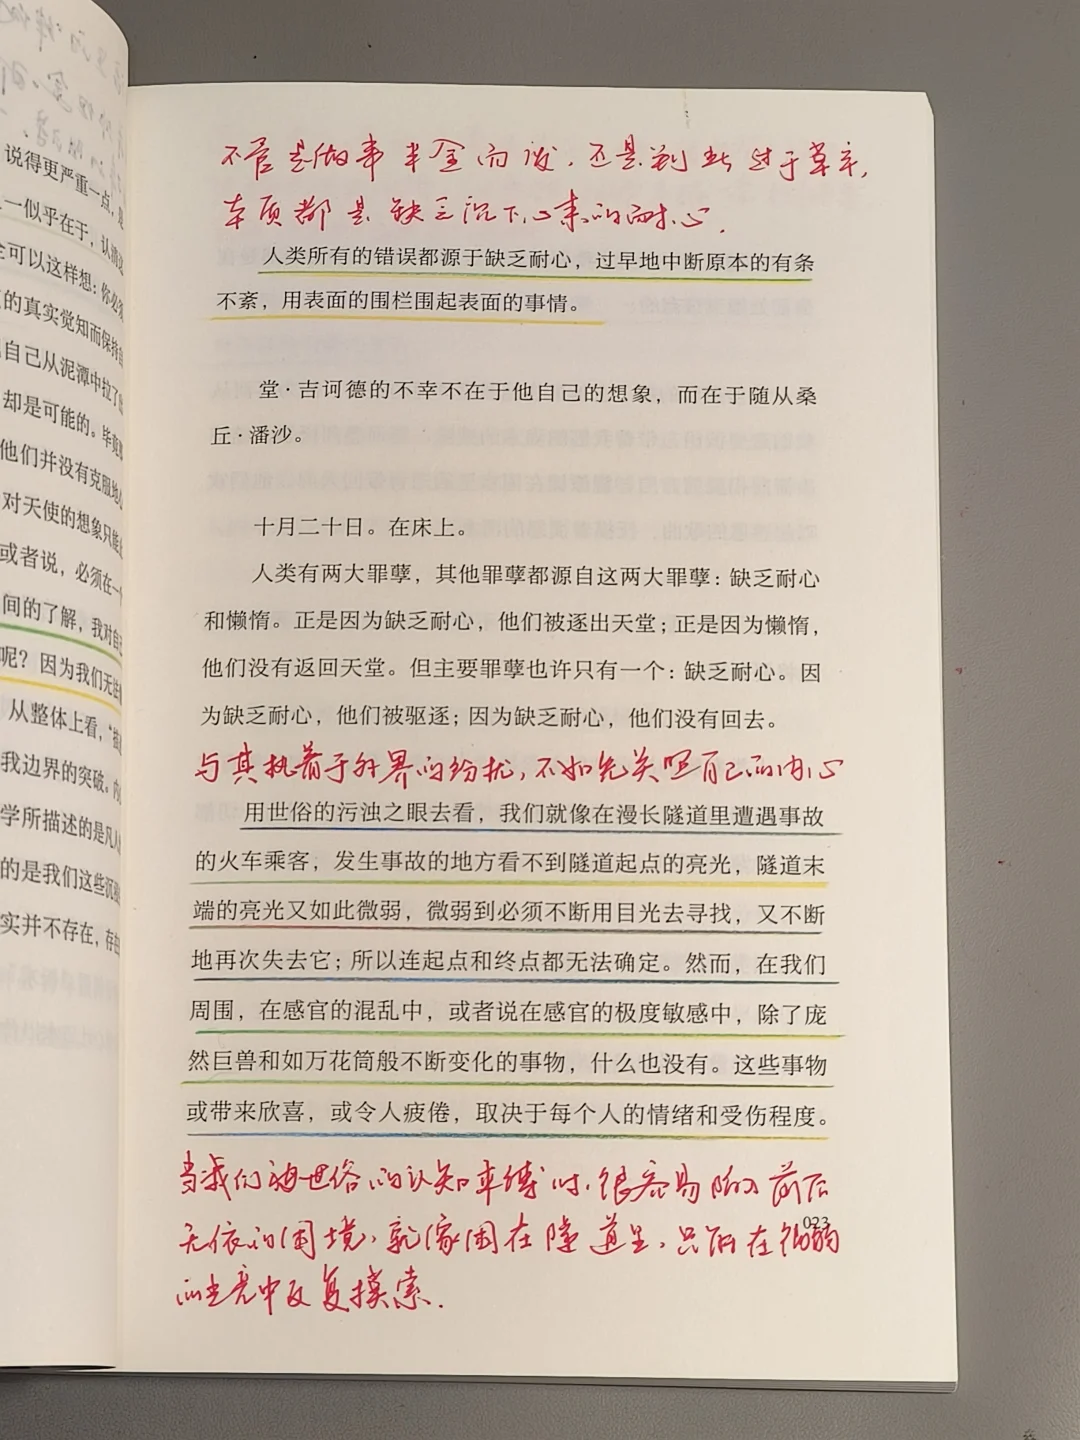 说得更严重一点，是
一似乎在于，认清这
全可以这样想：你必须
的真实觉知而保持自
自己从泥潭中拉了出
却是可能的。毕竟
他们并没有克服地心
对天使的想象只能
或者说，必须在一
间的了解，我对自
呢？因为我们无法
从整体上看，“描
我边界的突破。内
学所描述的是凡人
的是我们这些沉
实并不存在，存在
不管是做事半途而废，还是判断过于草率，
本质都是缺乏沉下心来的耐心。
人类所有的错误都源于缺乏耐心，过早地中断原本的有条
不紊，用表面的围栏围起表面的事情。
堂·吉诃德的不幸不在于他自己的想象，而在于随从桑
丘·潘沙。
十月二十日。在床上。
人类有两大罪孽，其他罪孽都源自这两大罪孽：缺乏耐心
和懒惰。正是因为缺乏耐心，他们被逐出天堂；正是因为懒惰，
他们没有返回天堂。但主要罪孽也许只有一个：缺乏耐心。因
为缺乏耐心，他们被驱逐；因为缺乏耐心，他们没有回去。
与其执着于外界的纷扰，不如先关照自己的内心
用世俗的污浊之眼去看，我们就像在漫长隧道里遭遇事故
的火车乘客，发生事故的地方看不到隧道起点的亮光，隧道末
端的亮光又如此微弱，微弱到必须不断用目光去寻找，又不断
地再次失去它；所以连起点和终点都无法确定。然而，在我们
周围，在感官的混乱中，或者说在感官的极度敏感中，除了庞
然巨兽和如万花筒般不断变化的事物，什么也没有。这些事物
或带来欣喜，或令人疲倦，取决于每个人的情绪和受伤程度。
当我们被世俗的认知束缚时，很容易陷入前后
无依的困境，就像困在隧道里，只能在微弱
的光亮中反复摸索。
023